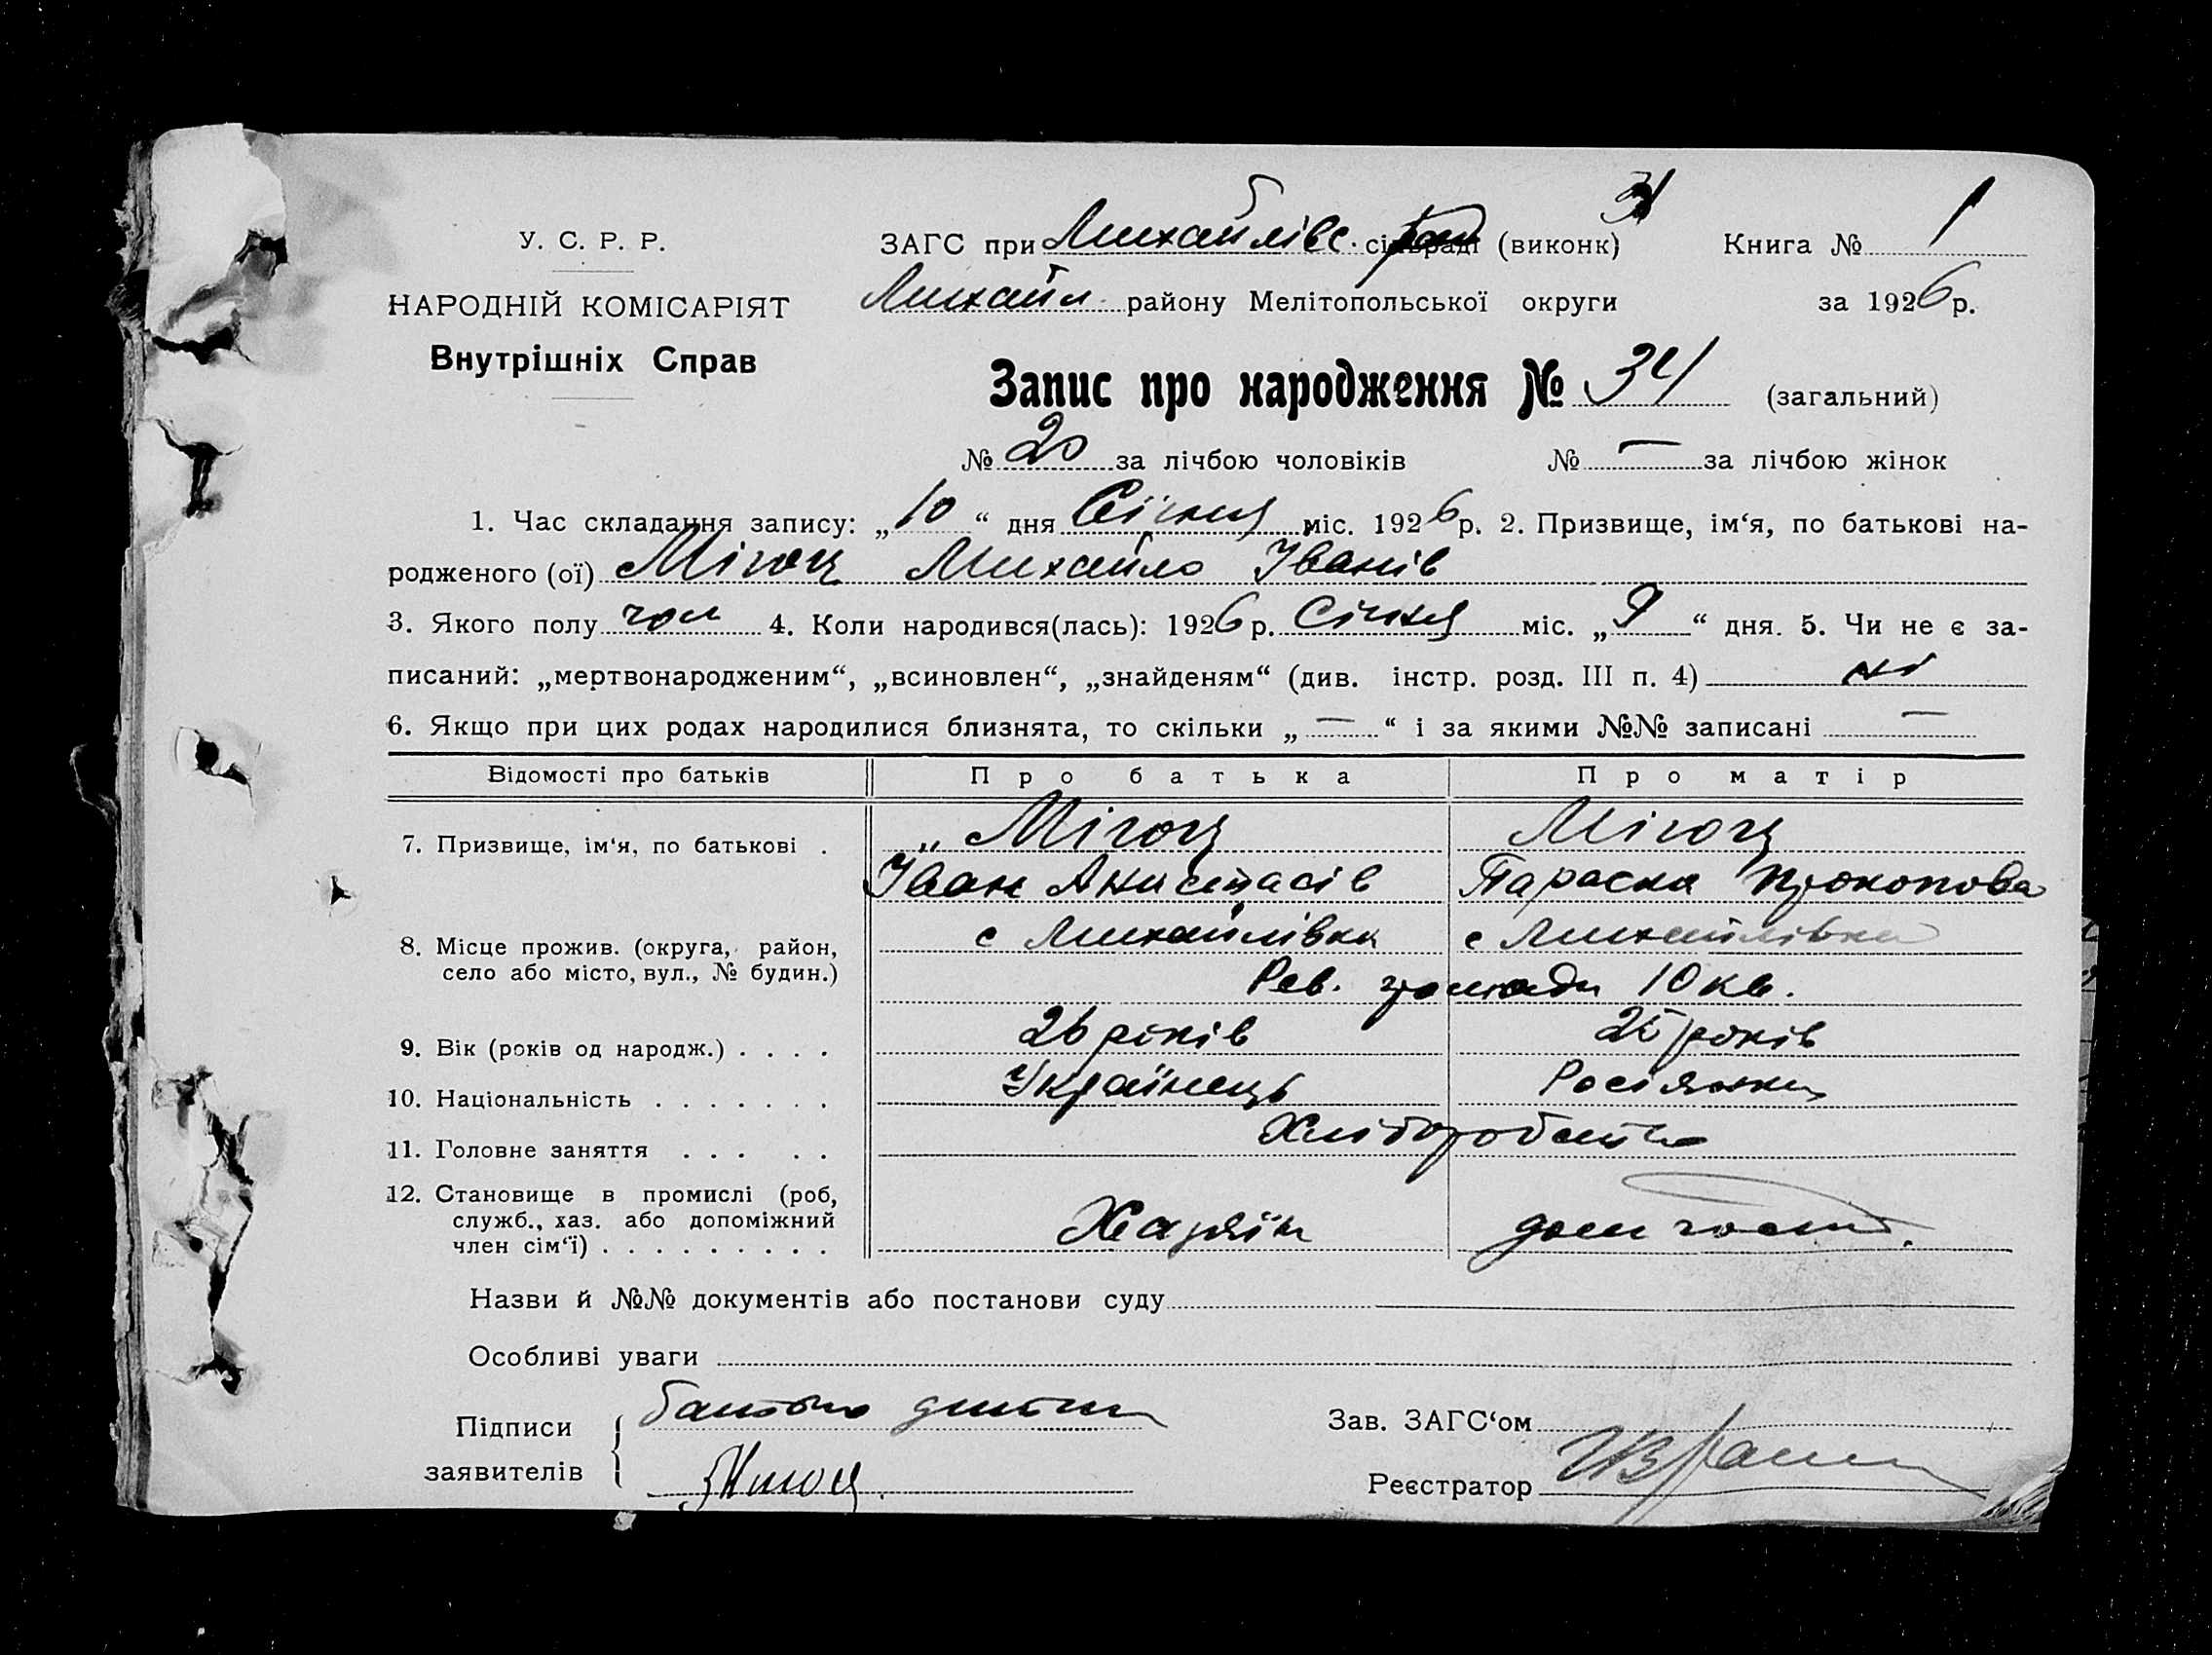 У. С. Р. Р.
НАРОДНІЙ КОМІСАРІЯТ
Внутрішніх Справ
ЗАГС при Михайлівс. сільраді (виконк) Книга № 1
Михайл. району Мелітопольської округи за 1926 р.
Запис про народження № 34 (загальний)
№ 20 за лічбою чоловіків № — за лічбою жінок
1. Час складання запису: „10“ дня Січня міс. 1926 р. 2. Призвище, ім‘я, по батькові на-
родженого (ої) Михайло Іванів
3. Якого полу чол 4. Коли народився(лась): 1926 р. Січня міс. „9“ дня. 5. Чи не є за-
писаний: „мертвонародженим“, „всиновлен“, „знайденям“ (див. інстр. розд. III п. 4) ні
6. Якщо при цих родах народилися близнята, то скільки „—“ і за якими №№ записані —
Відомості про батьків Про батька Про матір
7. Призвище, ім‘я, по батькові .
Іван Анистасів Параска Прокопова
8. Місце прожив. (округа, район, село або місто, вул., № будин.) с Михайлівка с Михайлівка
Рев. громади 10 кв.
9. Вік (років од народж.) . . . . 26 років 25 років
10. Національність . . . . . . . Українець Росіянка
11. Головне заняття . . . . . Хліборобство
12. Становище в промислі (роб, служб., хаз. або допоміжний член сім‘ї) . . . . . . . . . Хазяїн дом госп.
Назви й №№ документів або постанови суду
Особливі уваги
Підписи заявителів батько дитини
Зав. ЗАГС‘ом
Реєстратор